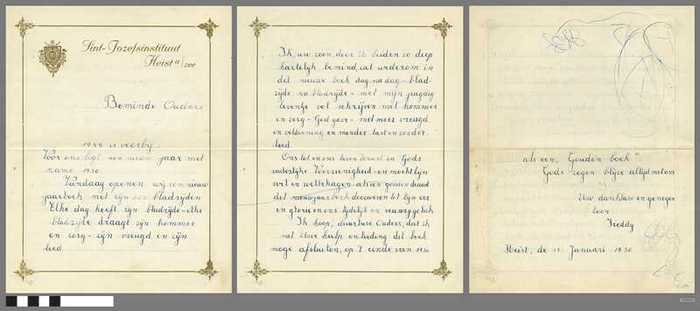 Sint-Jozefsinstituut
Heist a/zee
Beminde Ouders
is voorbij.
Voor ons ligt een nieuw jaar met
name 1950.
Vandaag openen wij een nieuw
jaarboek met zijn bladzijden
Elke dag heeft zijn bladzijde - elke
bladzijde draagt zijn kommer
en zorg - zijn vreugd en zijn
leed.
Ik, uw zoon, door U beiden zo diep
hartelijk bemind, zal wederom in
dit nieuw boek dag na dag - blad-
zijde na bladzijde - met mijn jeugdig
leventje vol schrijven met kommer
en zorg - God geve - met meer vreugd
en voldoening en minder last en zonder
leed.
Ons lot en ons leven berust in Gods
Voorzienigheid - en mocht Zijn
wil en welbehagen
dit boek tot Zijn eer
en glorie en ons tijdelijk en eeuwig geluk.
Ik hoop, duurbare Ouders, dat ik
met Uwe hulp en leiding dit boek
moge afsluiten, op 't einde van 1950
als een "Gouden boek"
Gods zegen blijve altijd met ons
Uw dankbare en genegen
zoon
Freddy
Heist, de Januari 1950